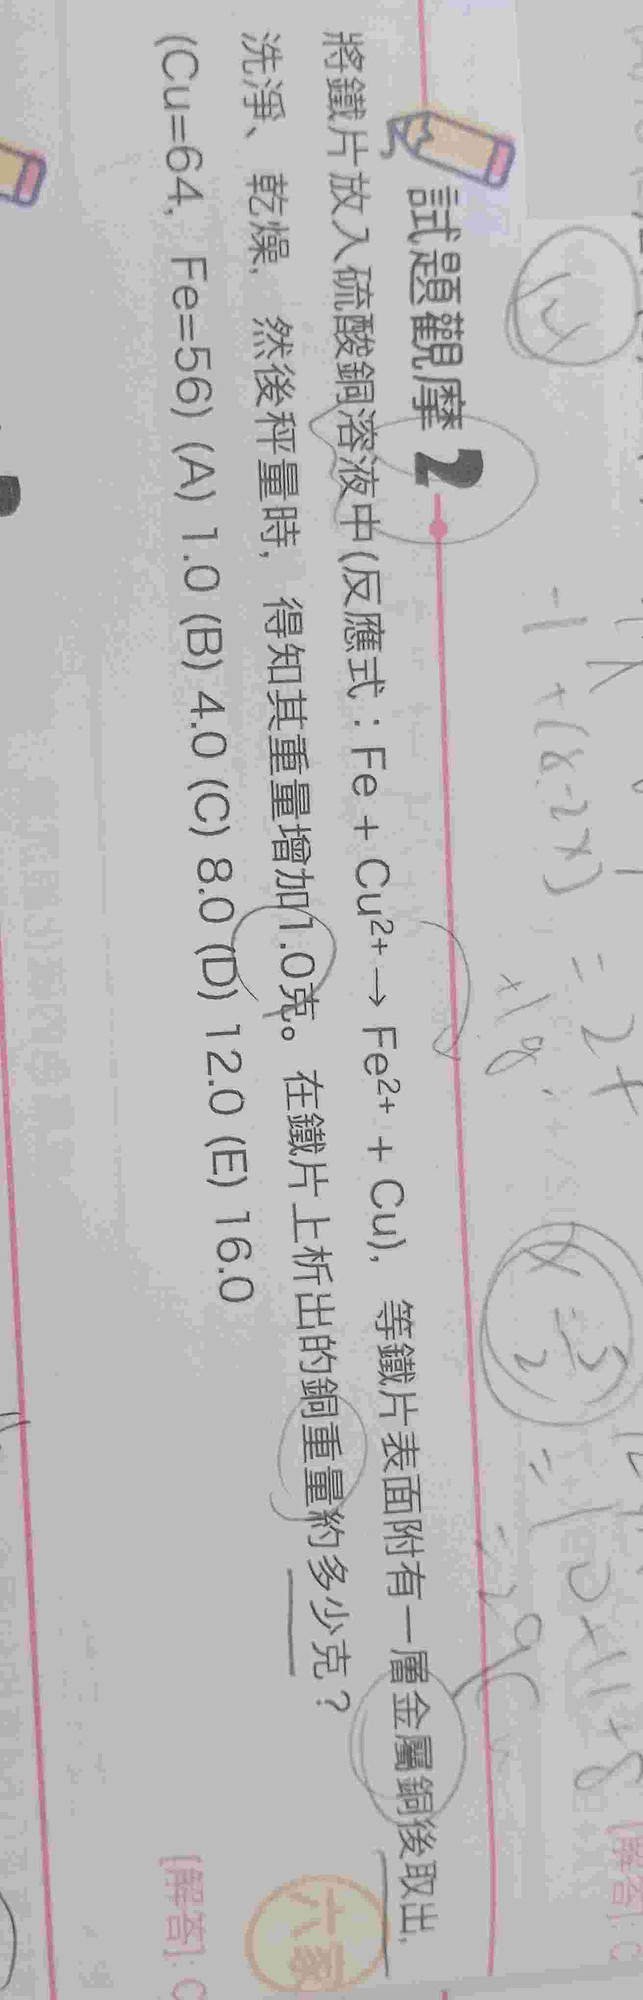 試題觀摩 2
將鐵片放入硫酸銅溶液中(反應式：Fe + Cu²⁺ → Fe²⁺ + Cu)，等鐵片表面附有一層金屬銅後取出，
洗淨、乾燥，然後秤量時，得知其重量增加1.0克。在鐵片上析出的銅重量約多少克？
(Cu=64，Fe=56) (A) 1.0 (B) 4.0 (C) 8.0 (D) 12.0 (E) 16.0
[解答]: C
[解答]: C
六家